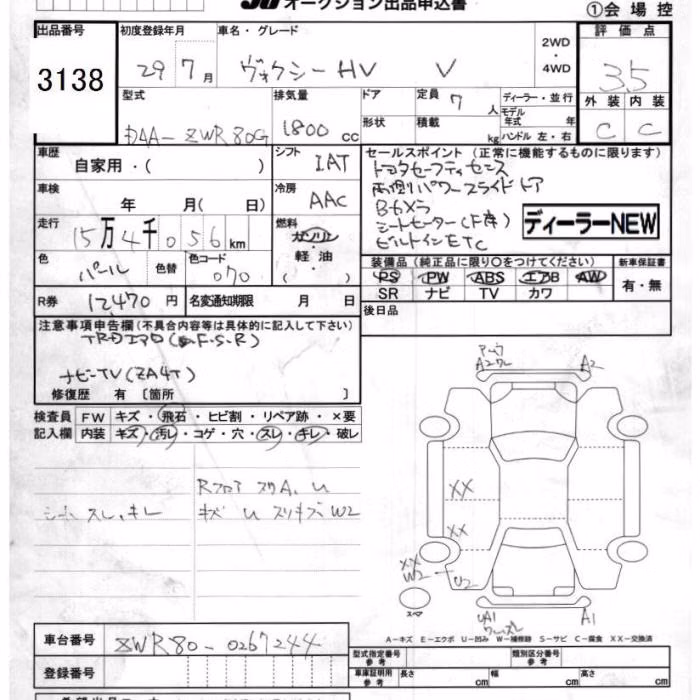 オークション出品申込書
①会場控
出品番号 初度登録年月 車名・グレード 2WD・4WD 評価点
3138 29年7月 ヴォクシーHV V 3.5
型式 排気量 ドア 定員 7人 ディーラー・並行 外装 内装
DAA-ZWR80G 1800cc 形状 積載 kg モデル年式 年 ハンドル 左・右 C C
車歴 自家用・( ) シフト IAT セールスポイント (正常に機能するものに限ります)
トヨタセーフティセンス
車検 年 月( 日) 冷房 AAC 両側パワースライドドア
Bカメラ
走行 15万4千056km 燃料 ガソリン・軽油・( ) シートヒーター(F席) ディーラーNEW
ビルトインETC
色 パール 色替 色コード 070
装備品 (純正品に限り○をつけてください) 新車保証書
PS PW ABS エアB AW 有・無
SR ナビ TV カワ
R券 12,470円 名変通知期限 月 日 後日品
注意事項申告欄(不具合内容等は具体的に記入して下さい)
TRDエアロ(F.S.R)
ナビーTV(ZA4T)
修復歴 有 [箇所 ]
検査員 FW キズ・飛石・ヒビ割・リペア跡・×要
記入欄 内装 キズ・汚れ・コゲ・穴・スレ・キレ・破レ
A2 A2
Rフロア スワA、U
シートスレ、キレ キズ U スリキズW2
XX
XX
XX
W2 U2
スペア UA1 A1
A－キズ E－エクボ U－凹み W－補修跡 S－サビ C－腐食 XX－交換済
車台番号 ZWR80-0267244
型式指定番号 参考 類別区分番号 参考
登録番号 車庫証明用 参考 長さ cm 幅 cm 高さ cm